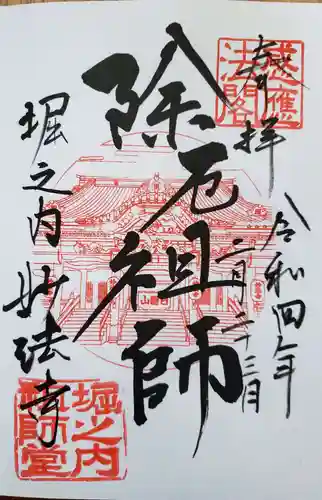 奉拝
感應
法閣
令和四年
二月二十三日
除厄祖師
堀之内妙法寺
堀之内
祖師堂